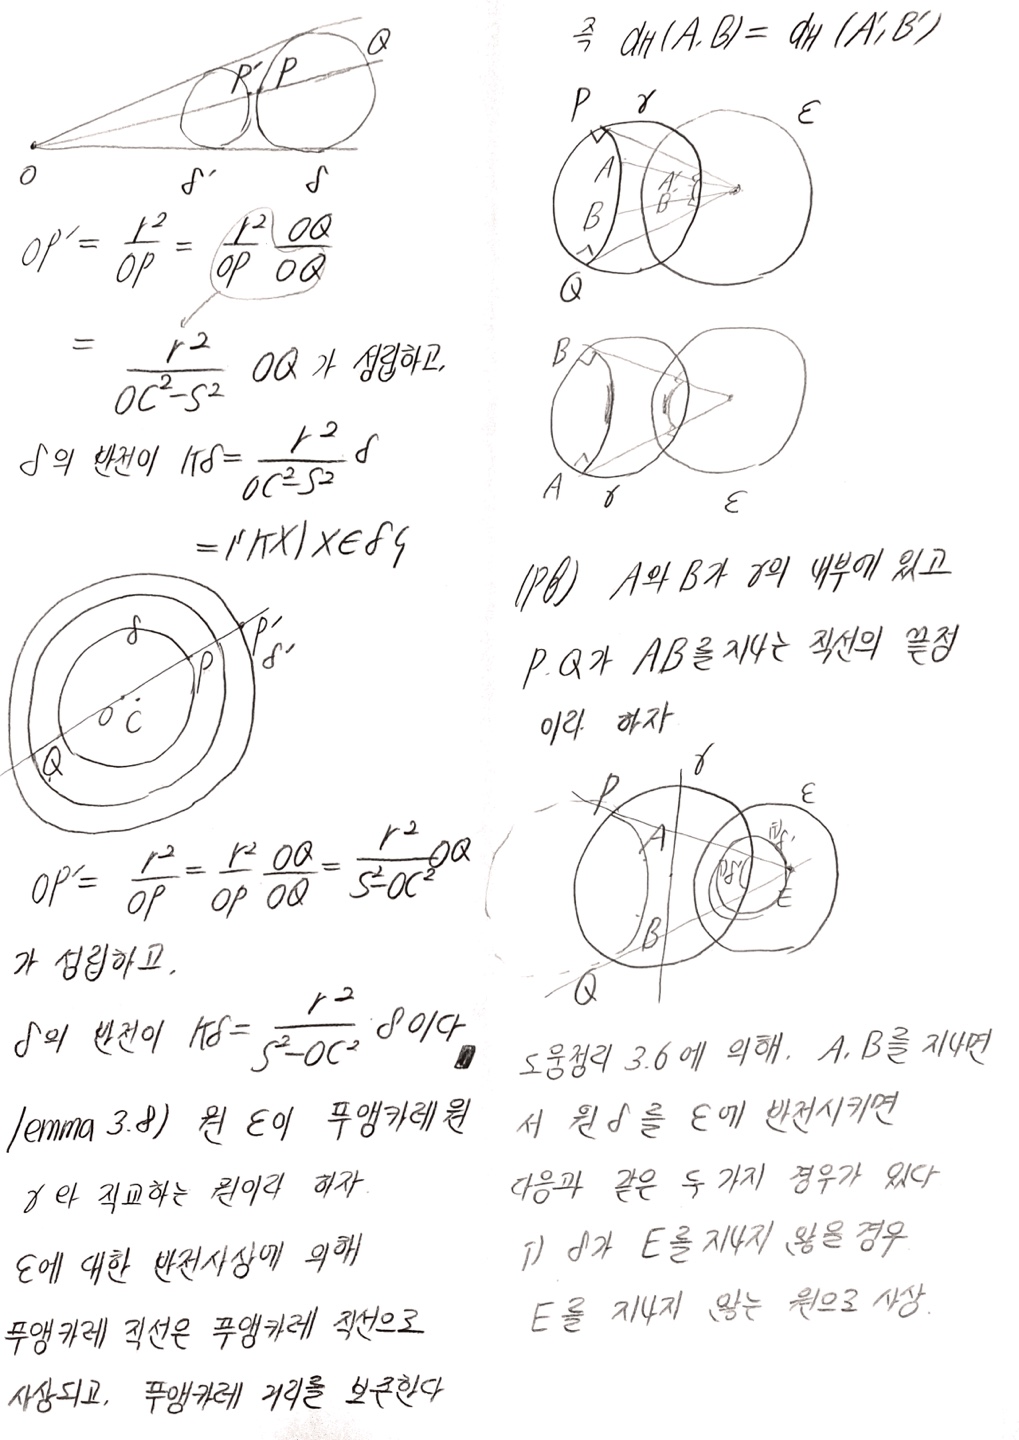 O
P'
P
Q
δ'
δ
OP' = r²/OP = r²/OP OQ/OQ
= r²/(OC²-S²) OQ 가 성립하고,
δ의 반전이 kδ = r²/(OC²-S²) δ
= {kX | X∈δ}
δ
P'
δ'
P
O
C
Q
OP' = r²/OP = r²/OP OQ/OQ = r²/(S²-OC²) OQ
가 성립하고,
δ의 반전이 kδ = r²/(S²-OC²) δ 이다
lemma 3.8) 원 ε이 푸앵카레 원
γ와 직교하는 원이라 하자.
ε에 대한 반전사상에 의해
푸앵카레 직선은 푸앵카레 직선으로
사상되고, 푸앵카레 거리를 보존한다
즉 dH(A,B) = dH(A',B')
P
γ
ε
A
A'
B
B'
Q
B
A
γ
ε
(pf) A와 B가 γ의 내부에 있고
P.Q가 AB를 지나는 직선의 끝점
이라 하자
P
γ
ε
A
B
E
Q
도움정리 3.6에 의해. A,B를 지나면
서 원 δ를 ε에 반전시키면
다음과 같은 두 가지 경우가 있다
i) δ가 E를 지나지 않을 경우
E를 지나지 않는 원으로 사상.